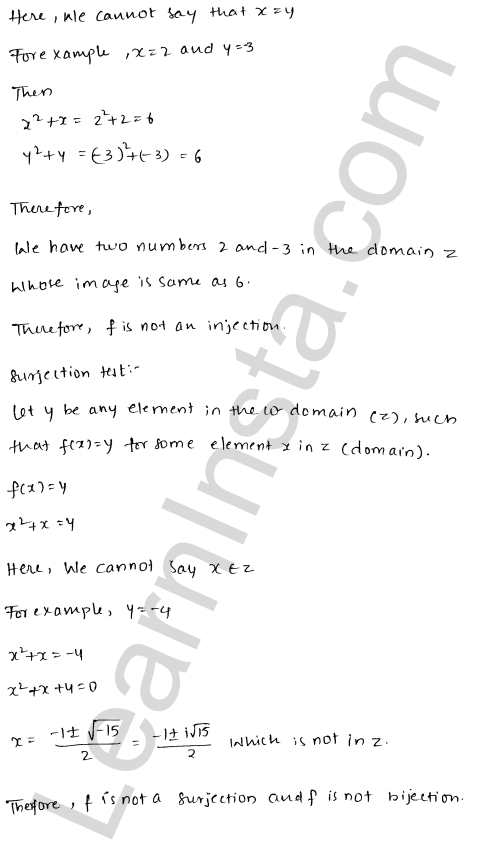 Here, We cannot say that x=y
For example, x=2 and y=3
Then
x²+x = 2²+2=6
y²+y = (-3)²+(-3) = 6
Therefore,
We have two numbers 2 and -3 in the domain z
Whose image is same as 6.
Therefore, f is not an injection.
Surjection test:-
Let y be any element in the co domain (z), such
that f(x)=y for some element x in z (domain).
f(x)=y
x²+x=y
Here, We cannot say x∈z
For example, y=-4
x²+x=-4
x²+x+4=0
x = (-1±√-15)/2 = (-1±i√15)/2 Which is not in z.
Therfore, f is not a surjection and f is not bijection.
LearnInsta.com